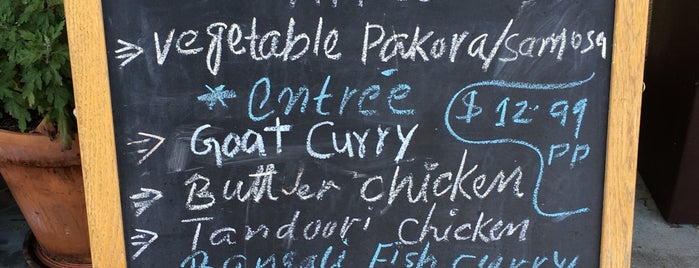 Vegetable Pakora/Samosa
* Entrée
$ 12.99
PP
Goat Curry
Butter Chicken
Tandoori Chicken
Bengali Fish Curry